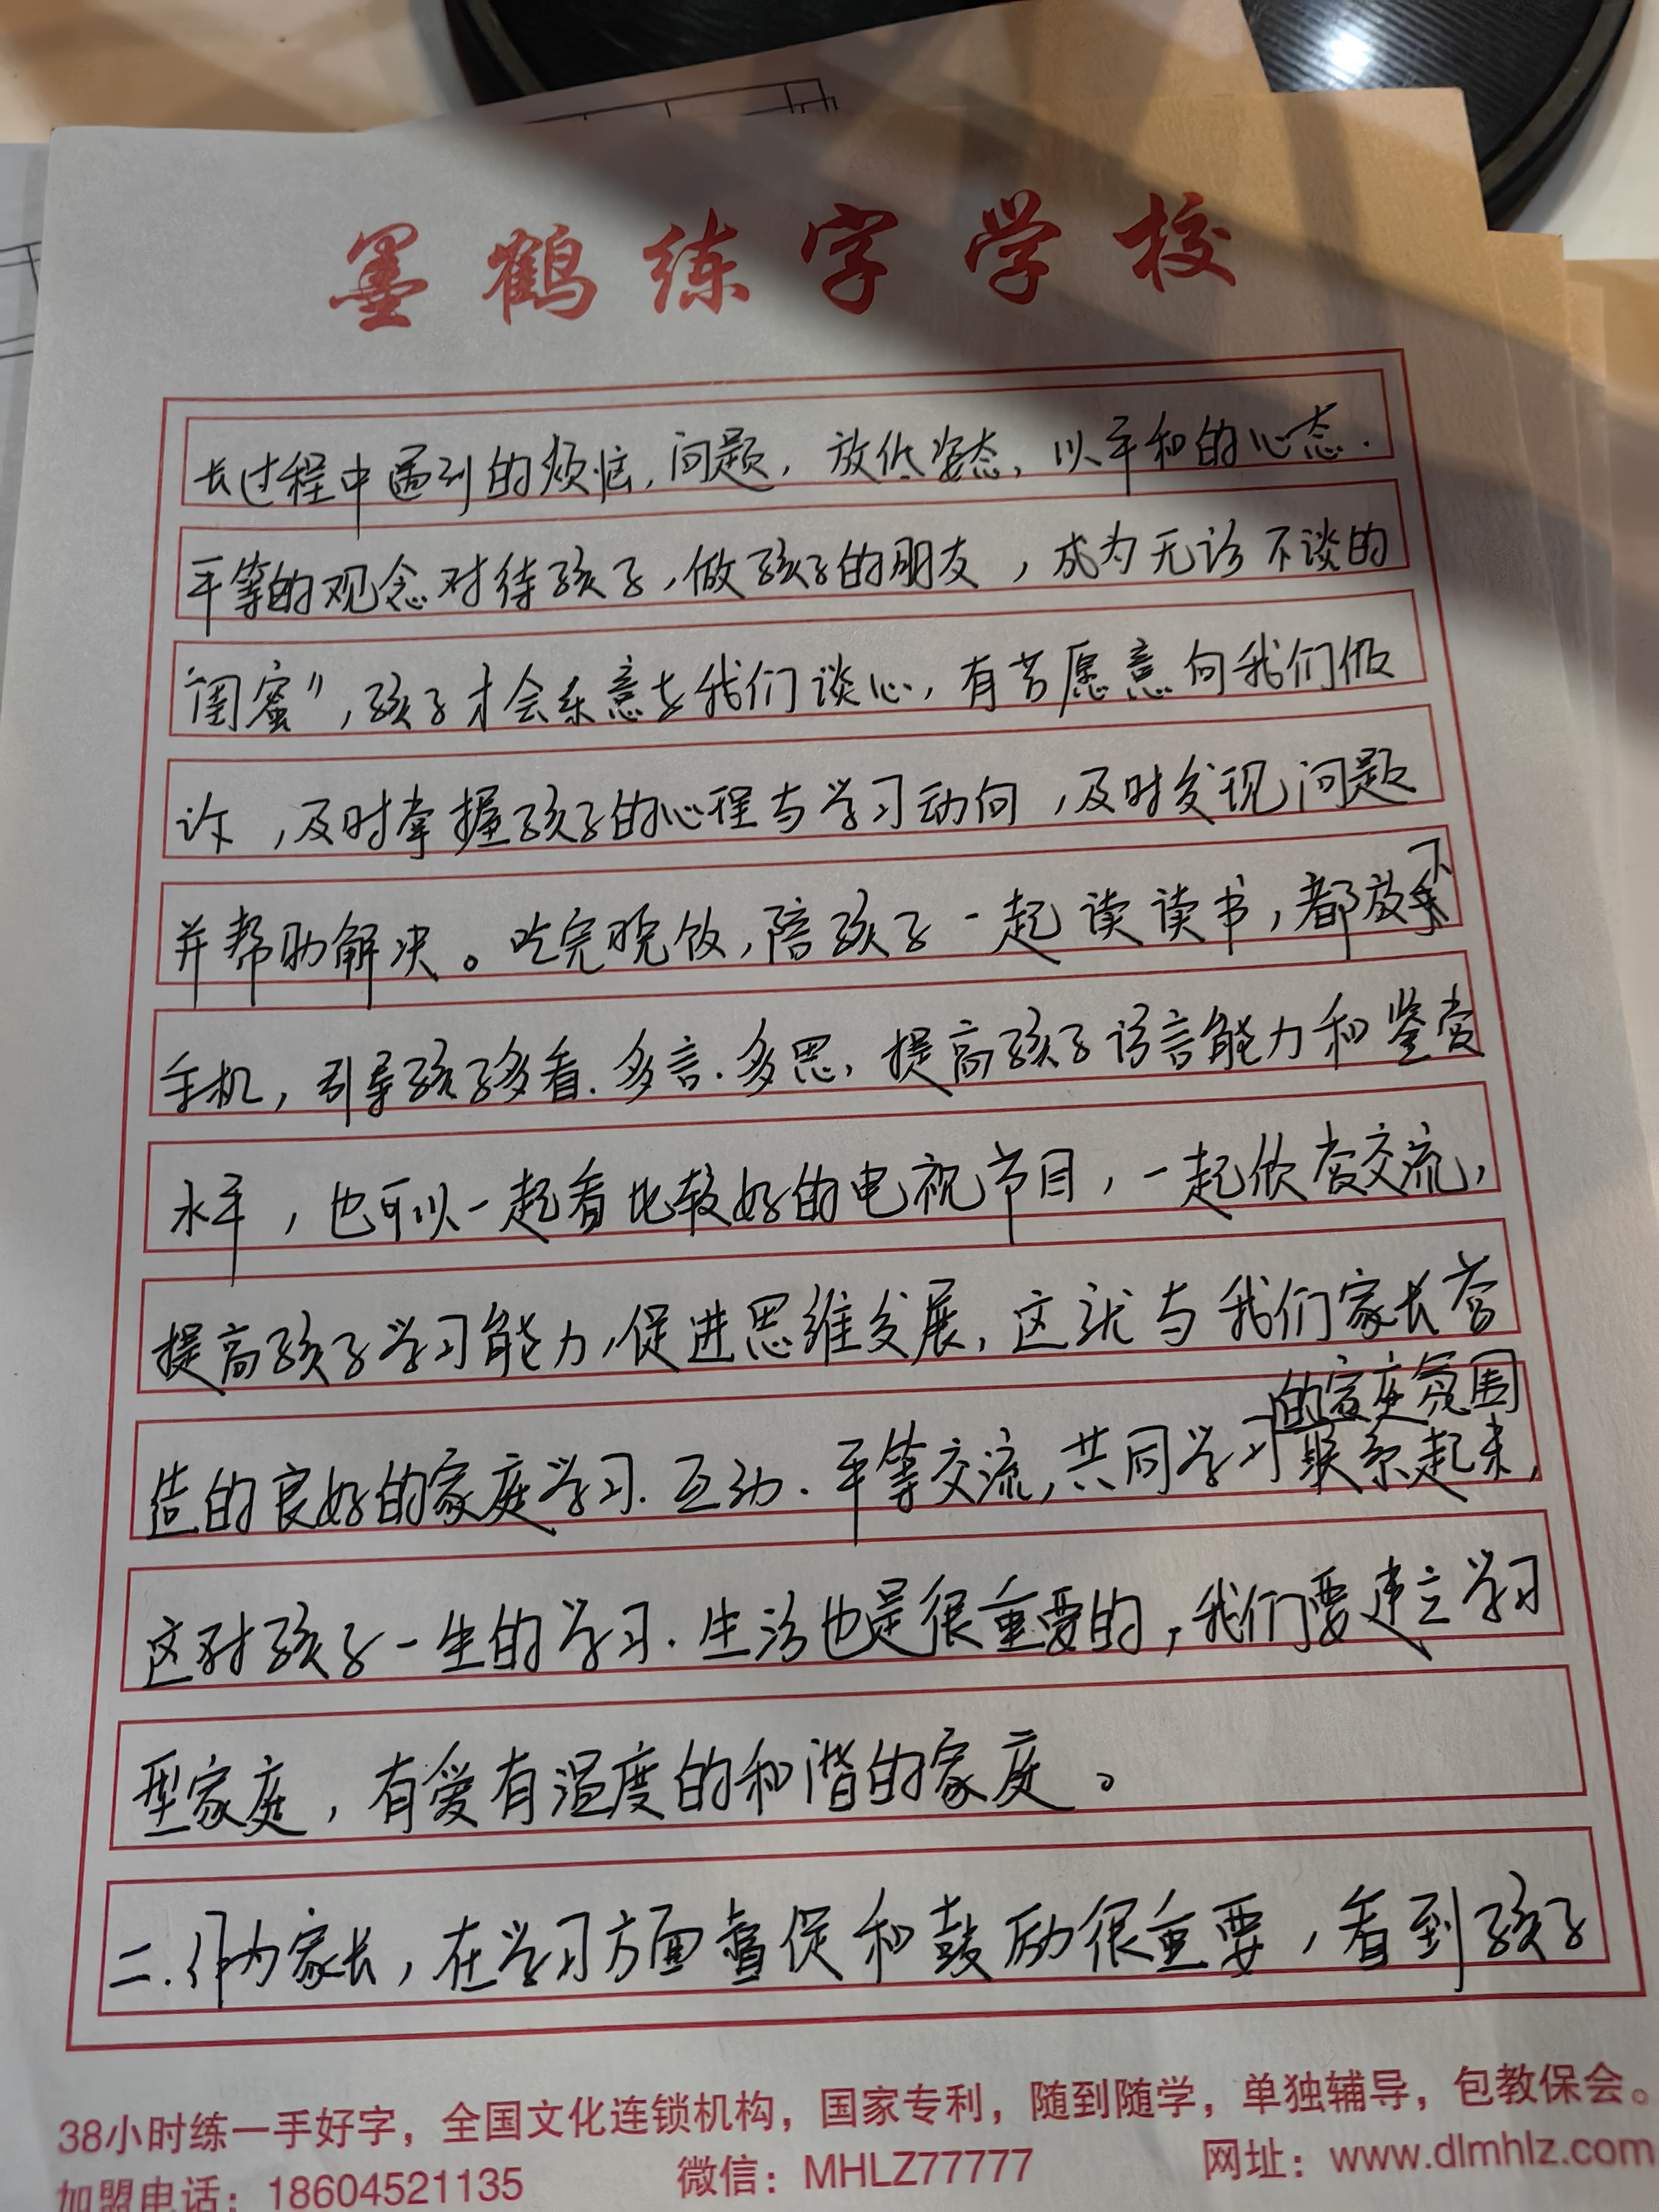 墨鹤练字学校
长过程中遇到的烦恼,问题,放低姿态,以平和的心态.
平等的观念对待孩子,做孩子的朋友,成为无话不谈的
“闺蜜”,孩子才会乐意与我们谈心,有苦愿意向我们倾
诉,及时掌握孩子的心理与学习动向,及时发现问题
并帮助解决。吃完晚饭,陪孩子一起读读书,都放下
手机,引导孩子多看.多言.多思,提高孩子语言能力和鉴赏
水平,也可以一起看比较好的电视节目,一起欣赏交流,
提高孩子学习能力,促进思维发展,这就与我们家长营
的家庭氛围
造的良好的家庭学习.互动.平等交流,共同学习联系起来,
这对孩子一生的学习.生活也是很重要的,我们要建立学习
型家庭,有爱有温度的和谐的家庭。
二.作为家长,在学习方面督促和鼓励很重要,看到孩子
38小时练一手好字,全国文化连锁机构,国家专利,随到随学,单独辅导,包教保会。
加盟电话:18604521135 微信:MHLZ77777 网址:www.dlmhlz.com